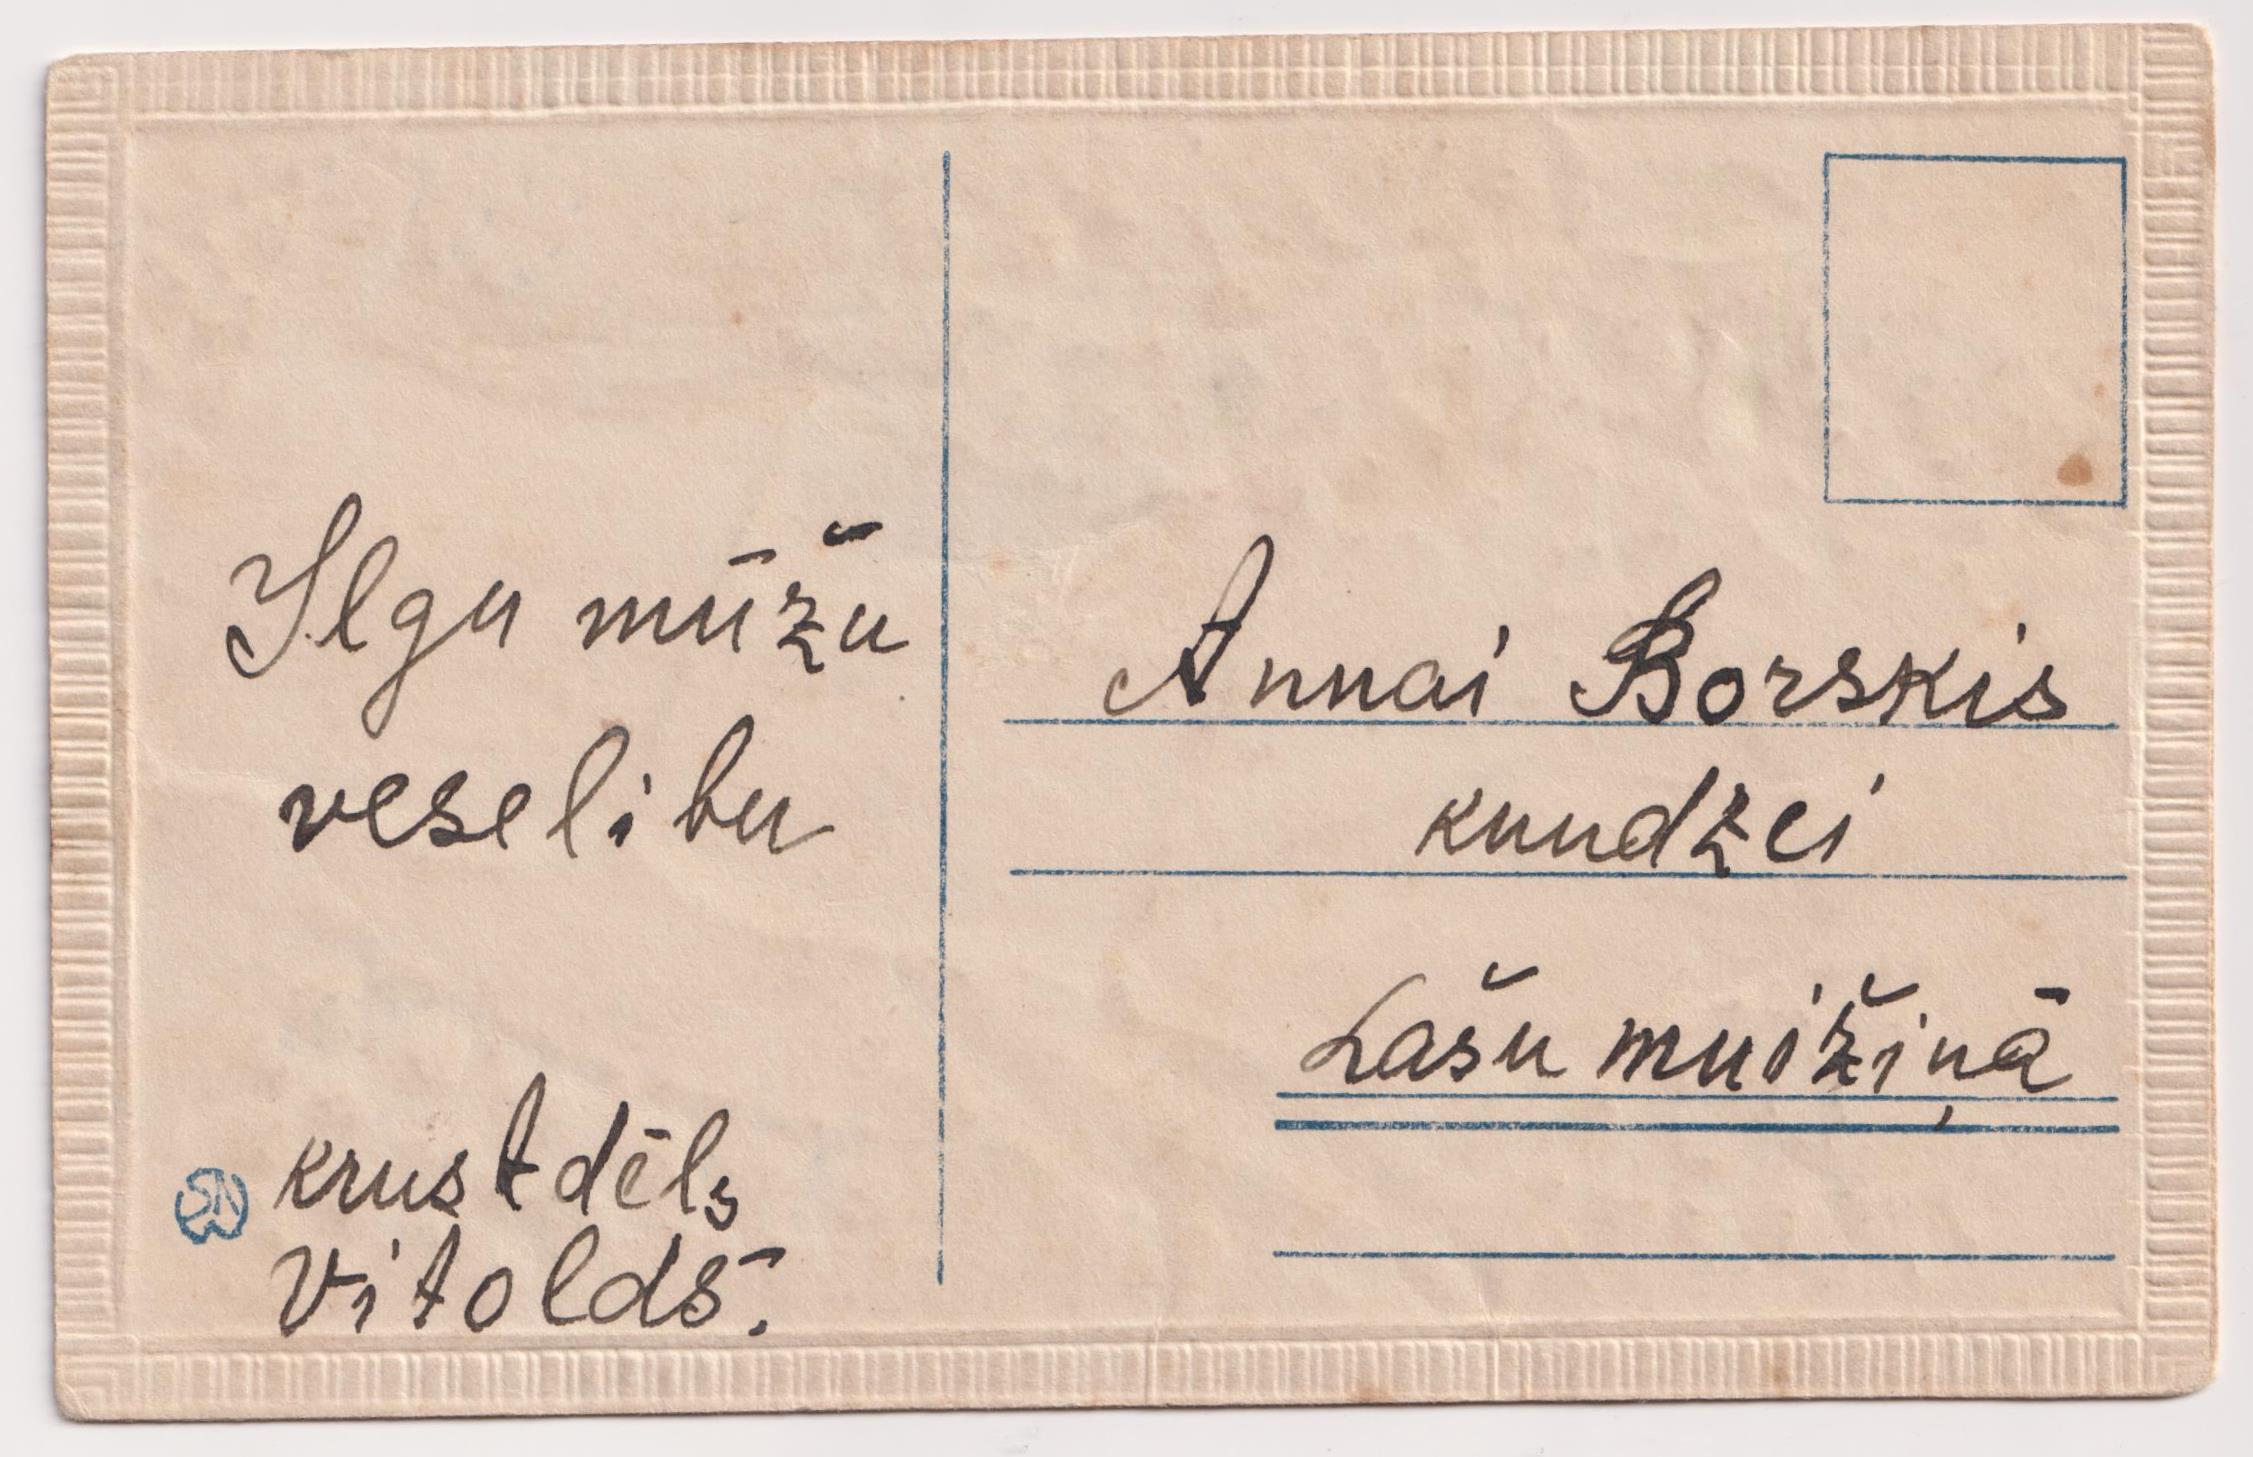 Ilgu mūžu
veselibu
krustdēls
Vitolds.
Annai Borskis
kundzei
Lašu muižiņā
SN